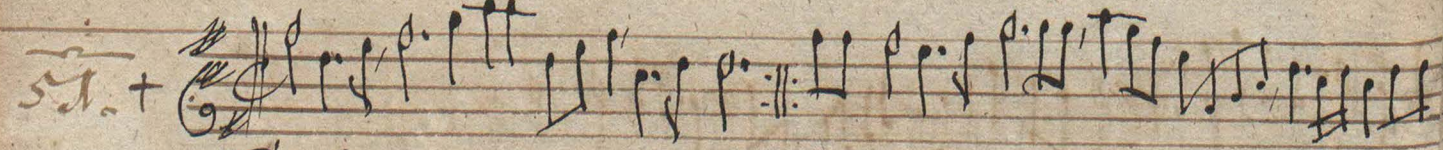 51. +